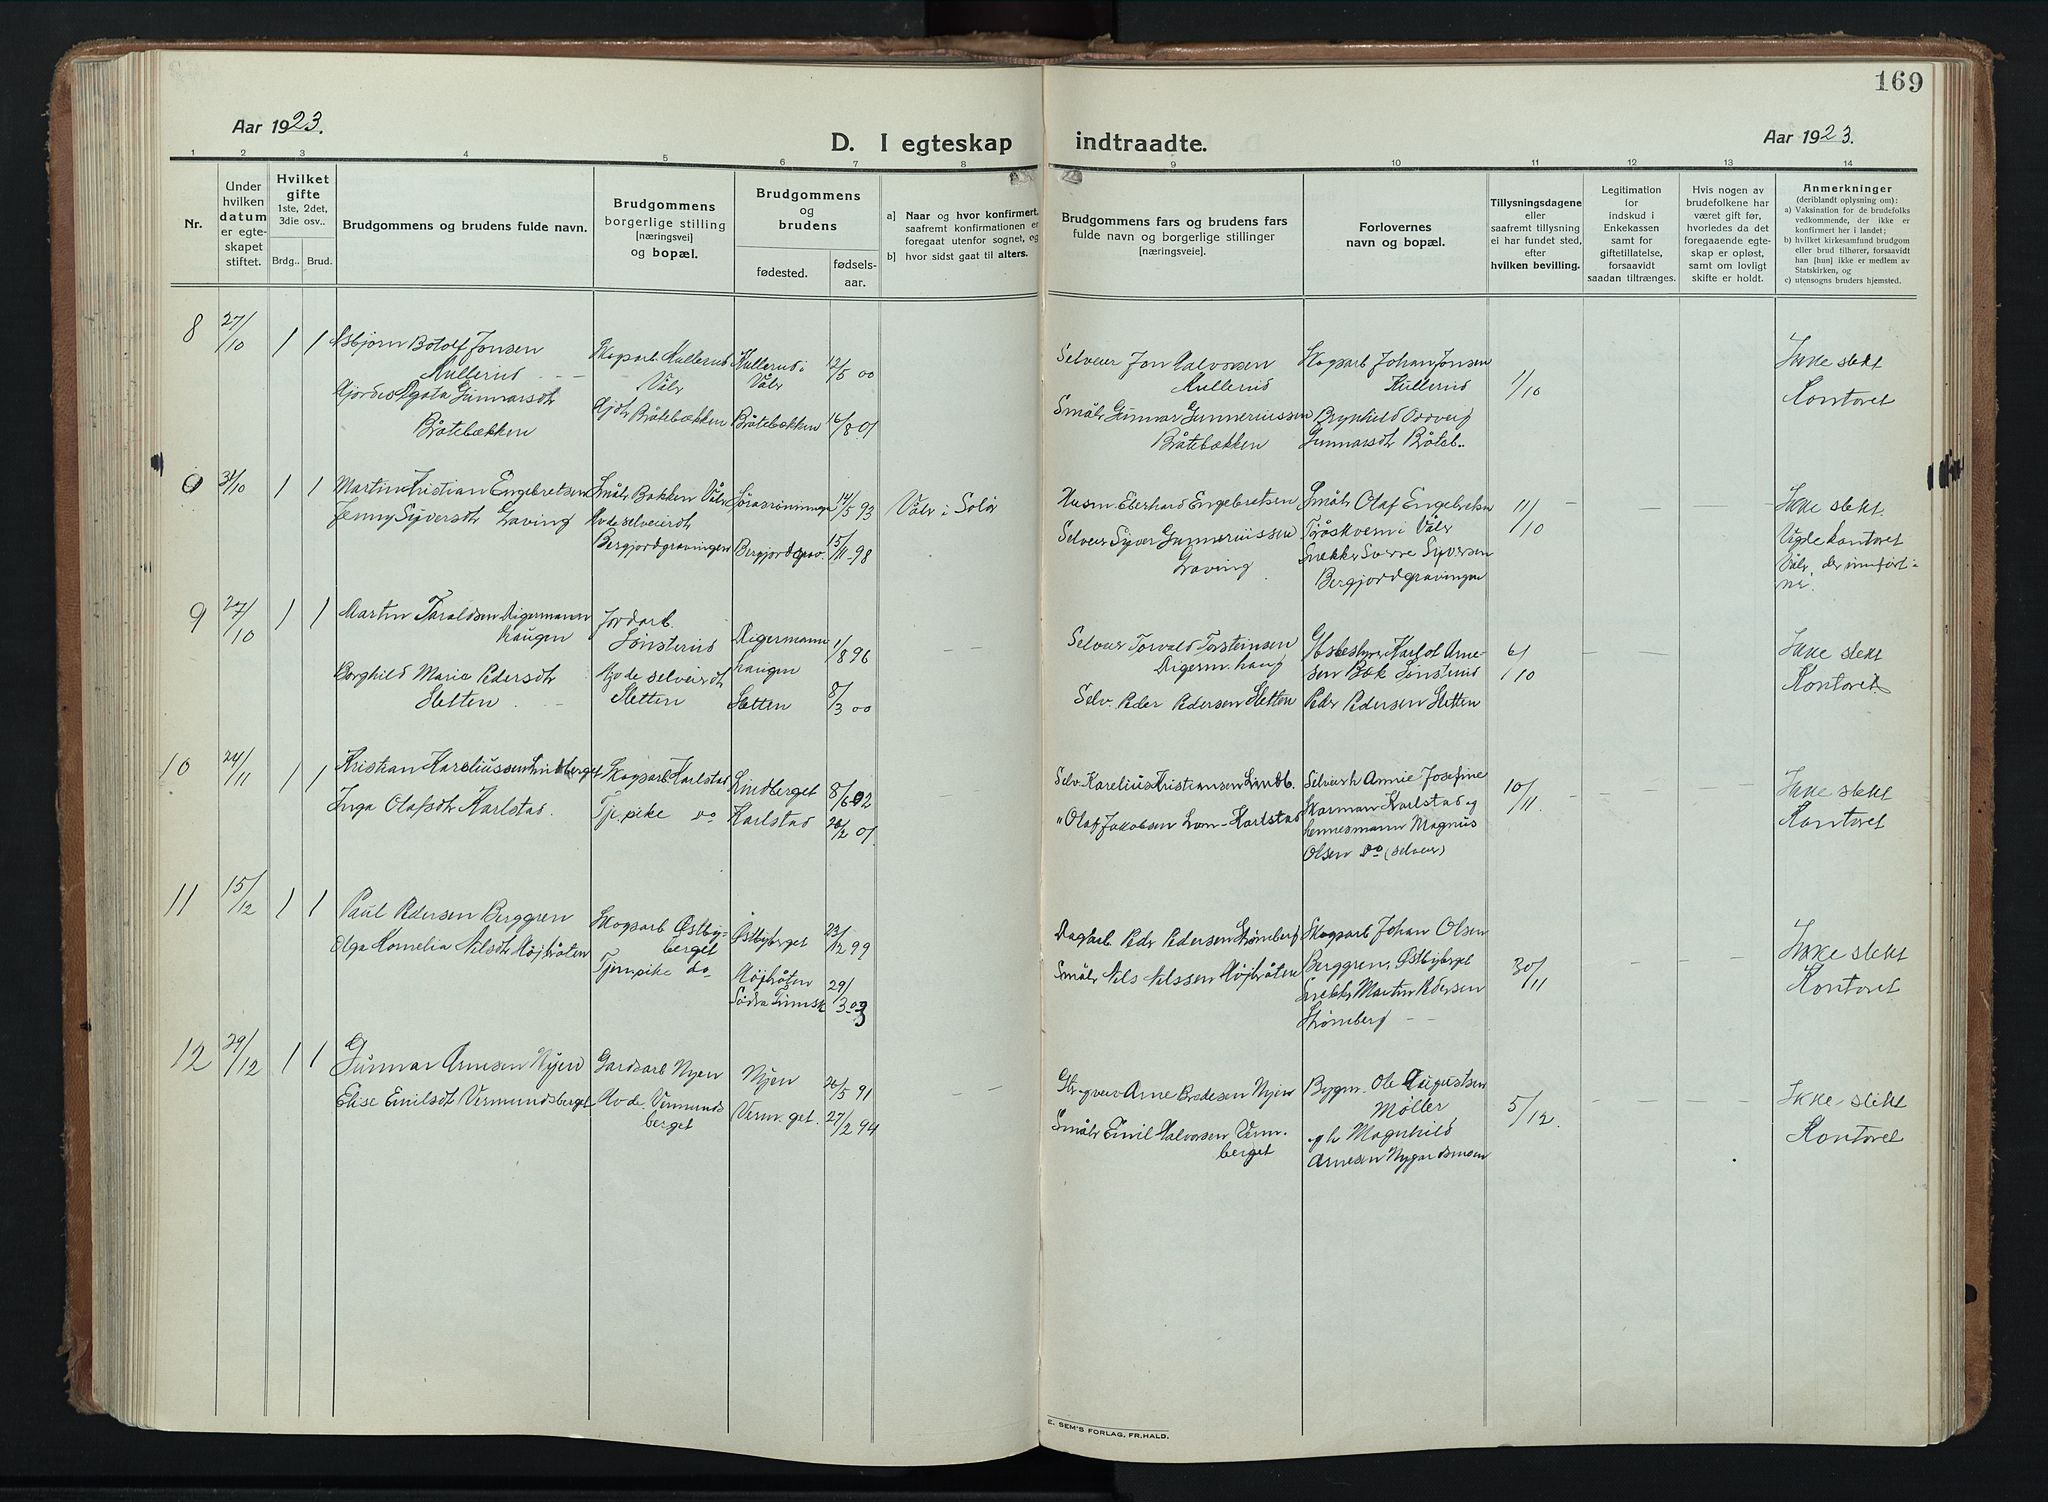 169
Aar 1923.
D. I egteskap indtraadte.
Aar 1923.
1 2 3 4 5 6 7 8 9 10 11 12 13 14
Nr.
Under hvilken datum er egte-skapet stiftet.
Hvilket gifte
1ste, 2det, 3die osv..
Brdg.. Brud.
Brudgommens og brudens fulde navn.
Brudgommens borgerlige stilling [næringsvei] og bopæl.
Brudgommens og brudens
fødested. fødsels-aar.
a] Naar og hvor konfirmert, saafremt konfirmationen er foregaat utenfor sognet, og
b] hvor sidst gaat til alters.
Brudgommens fars og brudens fars fulde navn og borgerlige stillinger [næringsveie].
Forlovernes navn og bopæl.
Tillysningsdagene eller saafremt tillysning ei har fundet sted, efter hvilken bevilling.
Legitimation for indskud i Enkekassen samt for giftetillatelse, forsaavidt saadan tiltrænges.
Hvis nogen av brudefolkene har været gift før, hvorledes da det foregaaende egte-skap er opløst, samt om lovligt skifte er holdt.
Anmerkninger
(deriblandt oplysning om):
a) Vaksination for de brudefolks vedkommende, der ikke er konfirmert her i landet;
b) hvilket kirkesamfund brudgom eller brud tilhører, forsaavidt han [hun] ikke er medlem av Statskirken, og
c) utensogns bruders hjemsted.
8 27/10 1 1 Asbjørn Botolf Jonsen Kullerud
Skogsarb. Kullerud Våler
Kullerud i Våler 12/5 00
Selveier Jon Halvorsen Kullerud
Skogsarb Johan Jonsen Kullerud
11/10
Ikke slekt
Kontoret
Hjørdis Agata Gunnarsdtr Bråtebækken
Hjdtr Bråtebækken
Bråtebækken 16/8 01
Småbr Gunnar Gunneriussen Bråtebækken
Brynhild Gunnarsdtr Bråteb..
0 31/10 1 1 Martin Kristian Engebretsen
Småbr Bakken Våler
14/5 93
Våler i Solør
Husm Eberhard Engebretsen
Småbr Olaf Engebretsen i Våler
11/10
Ikke slekt.
Vigde kontoret
Våler, der innført -
Jenny Syversdtr Graving
Bergjordgravingen
Bergjordgrav. 15/11-98
Selveier Syver Gunneriussen Graving
Snekker Sverre Syversen Bergjordgravingen
9 27/10 1 1 Martin Taraldsen Digermannhaugen
Jordarb. Lønsterud
Digermannhaugen 1/8 96
Selveier Torvald Torsteinsen Digerm.haug
Karl Arnesen Bæk Lønsterud
6/10
Ikke slekt
Kontoret
Borghild Marie Pedersdtr Sletten
Hj.v.de selveierdtr Sletten
Sletten 8/3 00
Selv. Peder Pedersen Sletten
Pedr Pedersen Sletten
10 24/11 1 1 Kristian Kareliussen Lindberget
Skogsarb Karlstad
Lindberget 8/6 02
Selv. Karelius Kristiansen Lindb.
Selveierh Annie Josefine Karlstad og
10/11.
Ikke slekt
Kontoret
Inga Olafsdtr Karlstad.
Tj.pike do
Karlstad 26/2 01.
" Olaf Jakobsen Karlstad
Magnus Olsen do (selveier)
11 15/12 1 1 Paul Pedersen Berggren
Skogsarb Østbyberget
Østbyberget 23/12 99
Dagarb. Pedr Pedersen Strømberg
Skogsarb Johan Olsen Berggren, Østbyberget
30/11
Ikke slekt
Kontoret
Olga Kornelia Nilsdtr Højbråten
Tjen.pike do
Højbråten Södra Finnsk 29/3 03
Småbr Nils Nilssen Højbråten
Snekker Martin Pedersen Strømberg
12 29/12 1 1 Gunnar Arnesen Nyen
Gardsarb Nyen
Nyen 26/5 91
Arne Bredesen Nyen
Bygm. Ole Augustsen Møller
5/12.
Ikke slekt
Kontoret
Elise Emilsdtr Vermundsberget
Hv.de Vermundsberget
Verm.get. 27/2 94
Småbr Emil Halvorsen Verm.berget
Magnhild Arnesen Nygardsmoen
E. SEM'S FORLAG, FR.HALD.